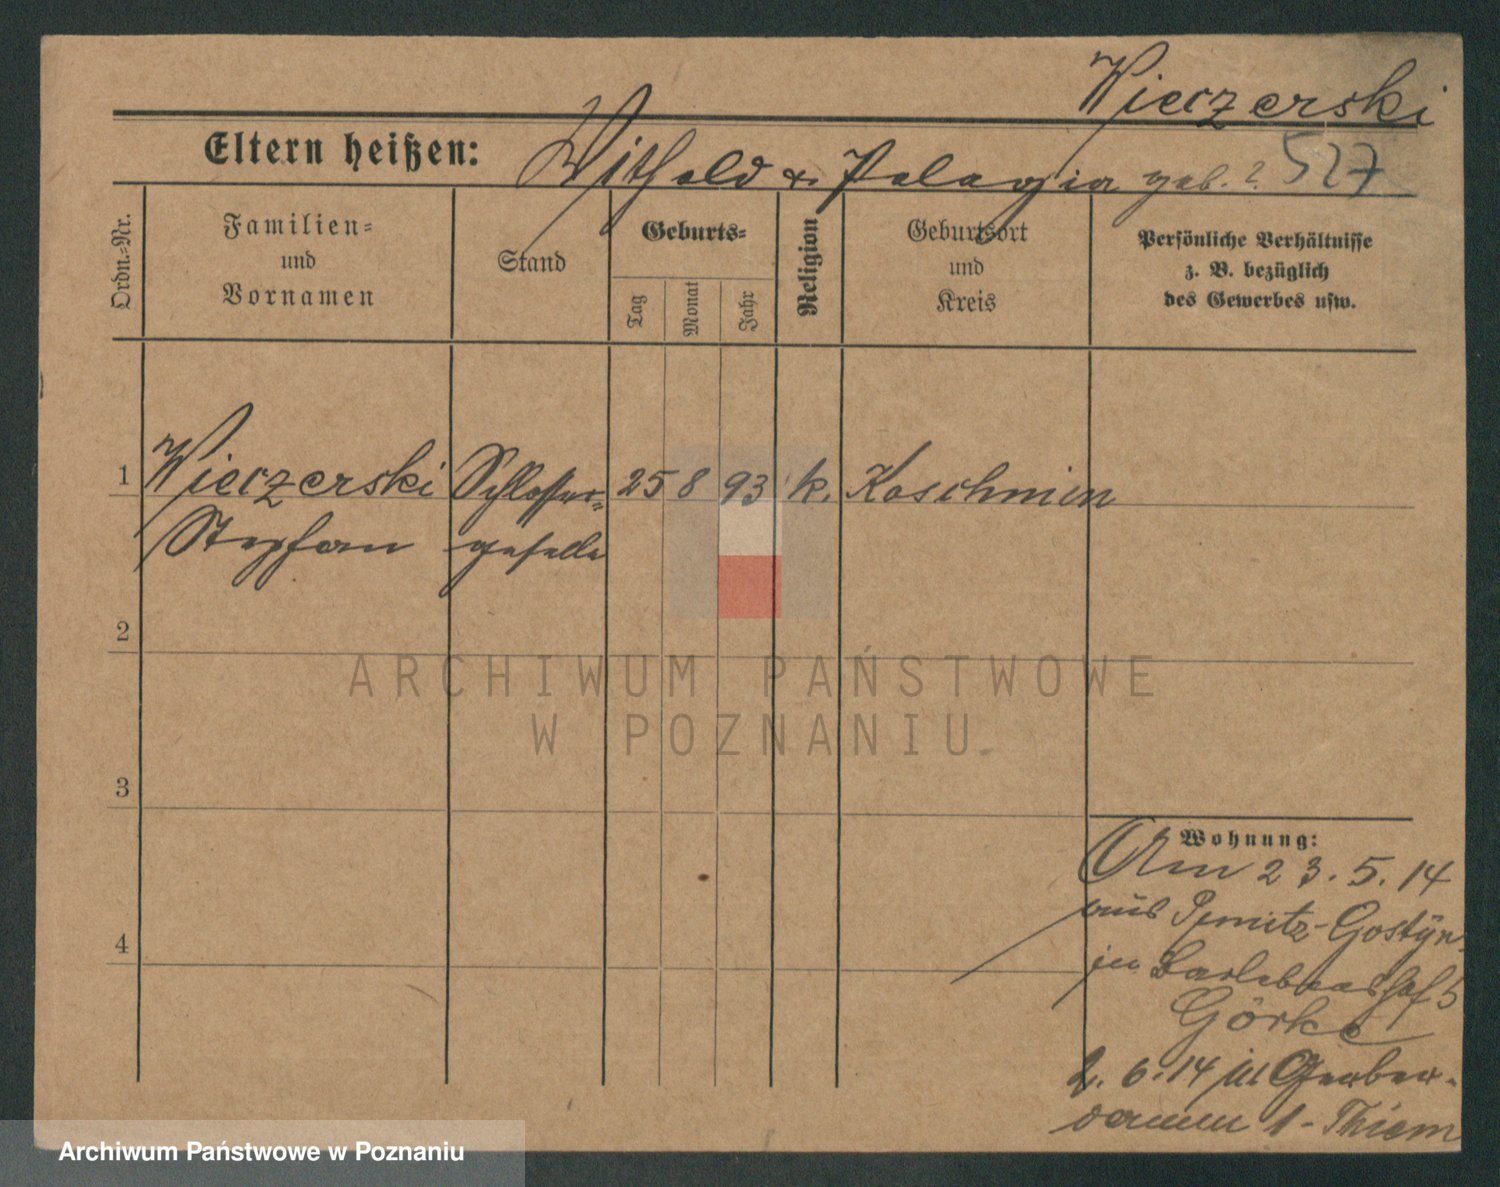 Wieczerski
Eltern heißen: Withold u. Pelagia geb. ?
527
Ordn.-Nr.
Familien-
und
Vornamen
Stand
Geburts-
Tag
Monat
Jahr
Religion
Geburtsort
und
Kreis
Persönliche Verhältnisse
z. B. bezüglich
des Gewerbes usw.
1 Wieczerski Schlosser- 25 8 93 k. Koschmin
Stephan geselle
2
ARCHIWUM PAŃSTWOWE
W POZNANIU
3
Wohnung:
Am 23.5.14
aus Pemitz-Gostyn
in 5
Görke
2.6.14 in Gerber-
damm 1 - Thiem
4
Archiwum Państwowe w Poznaniu